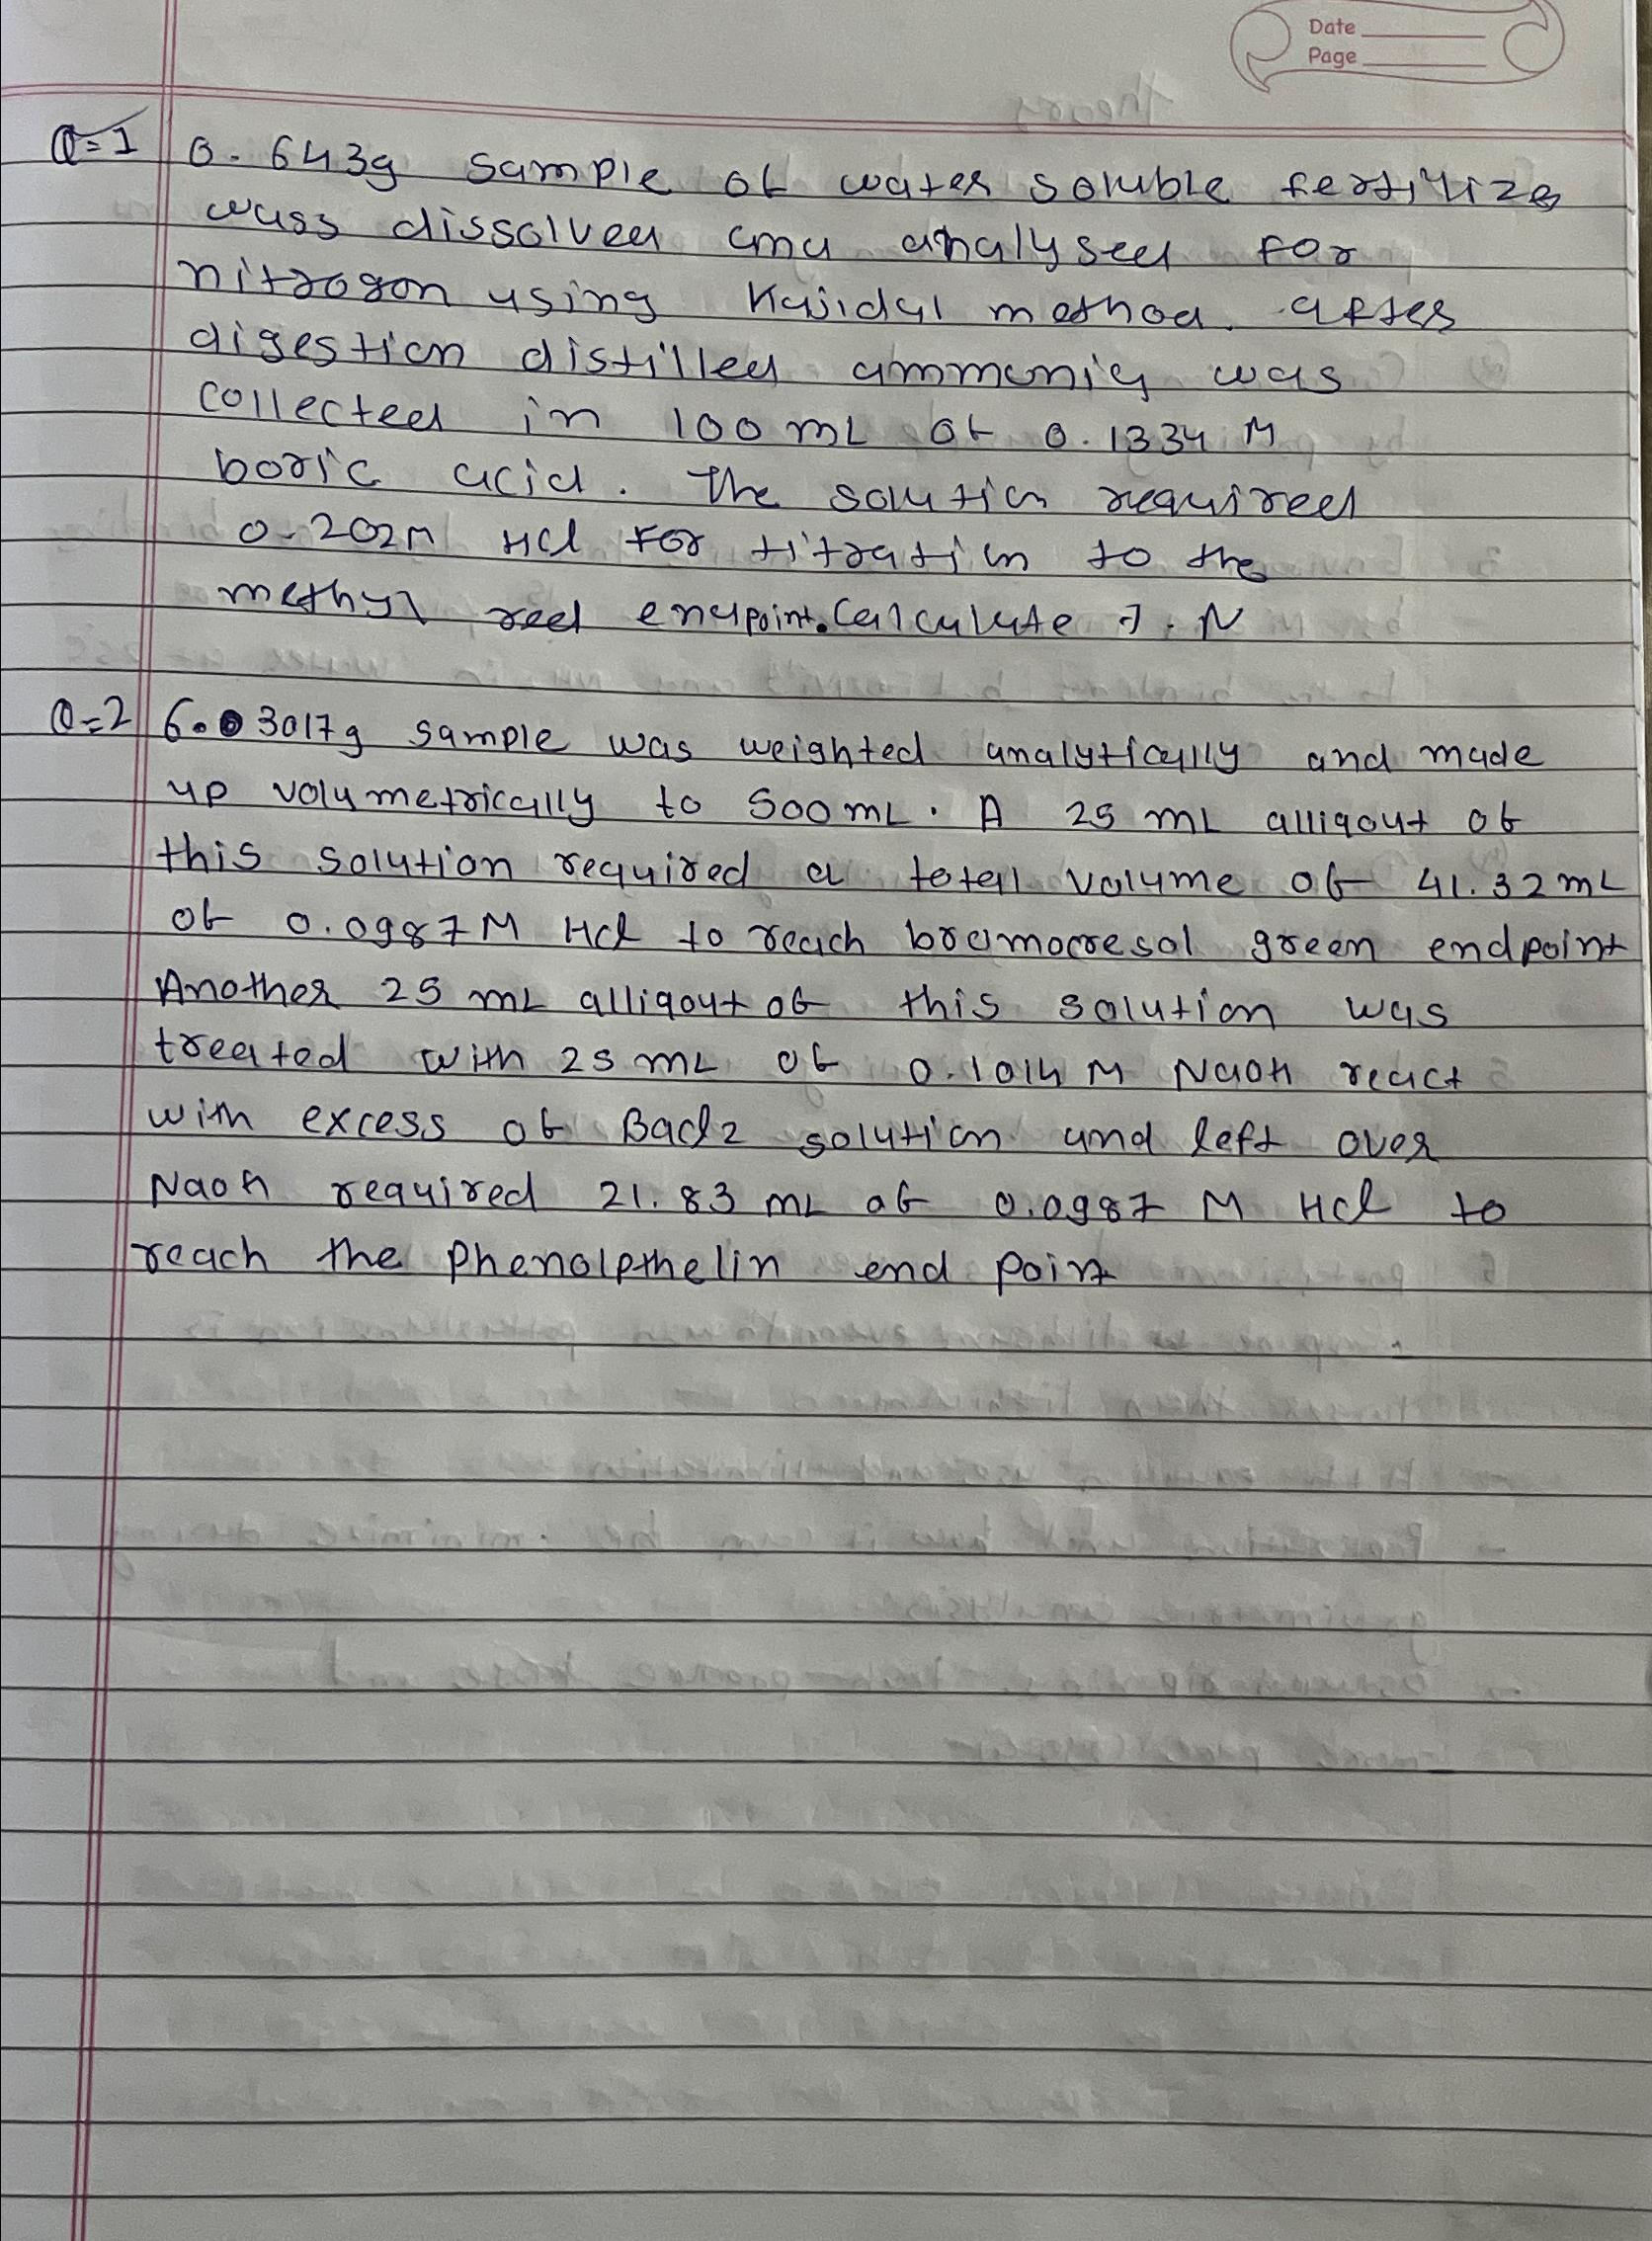 Date
Page
Q=1 0.643g sample of water soluble fertilizer
wass dissolved and analysed for
nitrogon using Kajidal method. after
digestion distilled ammonia was
collected in 100 mL of 0.1334 M
boric acid. The solution required
0.202M HCl for titration to the
methyl red endpoint. Calculate %. N
Q=2 6.3017g sample was weighted analytically and made
up volumetrically to 500 mL. A 25 mL alliqout of
this solution required a total volume of 41.32 mL
of 0.0987 M HCl to reach bromocresol green endpoint
Another 25 mL alliqout of this solution was
treated with 25 mL of 0.1014 M NaOH react
with excess of BaCl2 solution and left over
NaOH required 21.83 mL of 0.0987 M HCl to
reach the Phenolpthelin end point